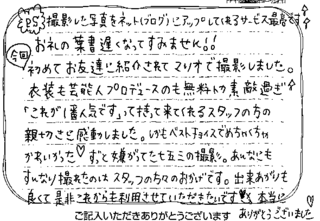 PS 撮影した写真をネット(ブログ)にアップしてくれるサービス最高です
お礼の葉書遅くなってすみません!!
今回
初めてお友達に紹介されてマリオで撮影しました。
衣装も芸能人プロデュースのも無料トカ素敵過ぎ
「これが1番人気です」って持って来てくれるスタッフの方の
親切さに感動しました。いつもベストチョイスでめちゃくちゃ
かわいかった♡ずっと嫌がってた七五三の撮影。あんなにも
すんなり撮れたのはスタッフの方々のおかげです。出来あがりも
良くて是非これからも利用させていただきたいです♥本当に
ありがとうございました
ご記入いただきありがとうございます